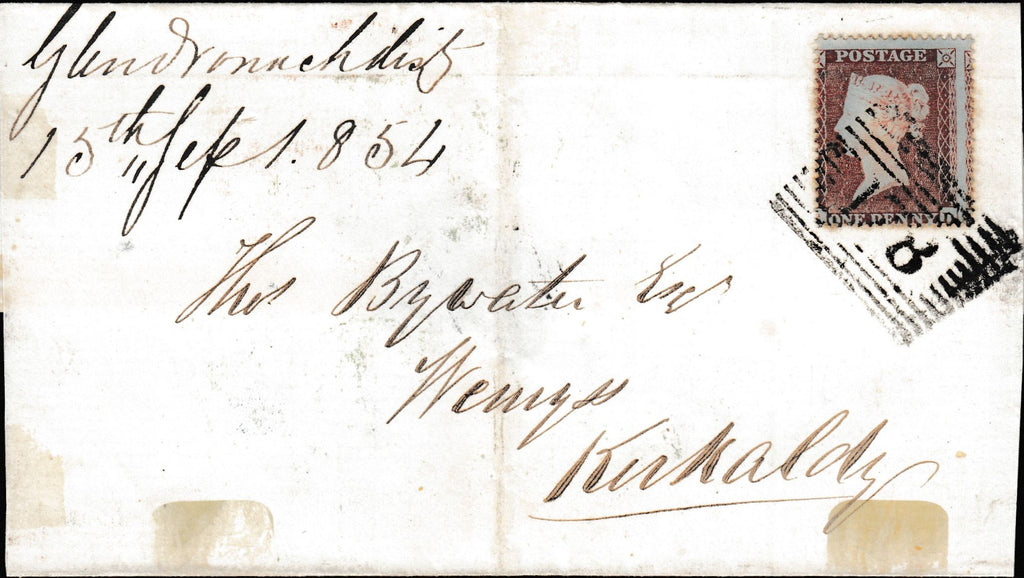 Glendronach dist
15th Sep 1.854
POSTAGE
ONE PENNY D
8
Thos Bywater Esqr
Wemyss
Kirkaldy